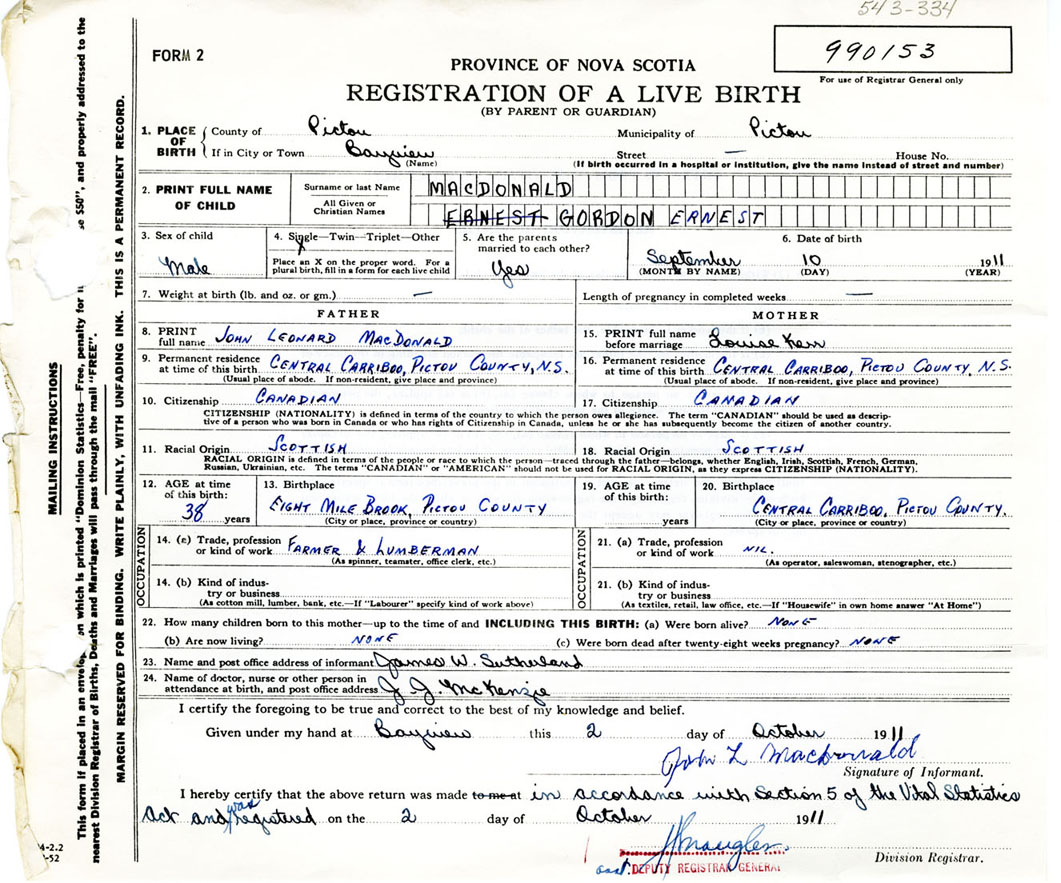 543-334
FORM 2
990153
For use of Registrar General only
PROVINCE OF NOVA SCOTIA
REGISTRATION OF A LIVE BIRTH
(BY PARENT OR GUARDIAN)
1. PLACE OF BIRTH County of Pictou Municipality of Pictou
If in City or Town Bayview Street — House No.
(Name) (If birth occurred in a hospital or institution, give the name instead of street and number)
2. PRINT FULL NAME OF CHILD
Surname or last Name MACDONALD
All Given or Christian Names ERNEST GORDON ERNEST
3. Sex of child 4. Single—Twin—Triplet—Other 5. Are the parents married to each other? 6. Date of birth
Male X Place an X on the proper word. For a plural birth, fill in a form for each live child Yes September 10 1911
(MONTH BY NAME) (DAY) (YEAR)
7. Weight at birth (lb. and oz. or gm.) — Length of pregnancy in completed weeks —
FATHER MOTHER
8. PRINT full name JOHN LEONARD MACDONALD
15. PRINT full name before marriage Louise Kerr
9. Permanent residence at time of this birth CENTRAL CARRIBOO, PICTOU COUNTY, N.S.
(Usual place of abode. If non-resident, give place and province)
16. Permanent residence at time of this birth CENTRAL CARRIBOO, PICTOU COUNTY, N.S.
(Usual place of abode. If non-resident, give place and province)
10. Citizenship CANADIAN 17. Citizenship CANADIAN
CITIZENSHIP (NATIONALITY) is defined in terms of the country to which the person owes allegience. The term "CANADIAN" should be used as descrip-
tive of a person who was born in Canada or who has rights of Citizenship in Canada, unless he or she has subsequently become the citizen of another country.
11. Racial Origin SCOTTISH 18. Racial Origin SCOTTISH
RACIAL ORIGIN is defined in terms of the people or race to which the person—traced through the father—belongs, whether English, Irish, Scottish, French, German,
Russian, Ukrainian, etc. The terms "CANADIAN" or "AMERICAN" should not be used for RACIAL ORIGIN, as they express CITIZENSHIP (NATIONALITY).
12. AGE at time of this birth: 38 years
13. Birthplace EIGHT MILE BROOK, PICTOU COUNTY
(City or place, province or country)
19. AGE at time of this birth: years
20. Birthplace CENTRAL CARRIBOO, PICTOU COUNTY.
(City or place, province or country)
OCCUPATION
14. (c) Trade, profession or kind of work FARMER & LUMBERMAN
(As spinner, teamster, office clerk, etc.)
OCCUPATION
21. (a) Trade, profession or kind of work NIL.
(As operator, saleswoman, stenographer, etc.)
14. (b) Kind of indus-
try or business
(As cotton mill, lumber, bank, etc.—If "Labourer" specify kind of work above)
21. (b) Kind of indus-
try or business
(As textiles, retail, law office, etc.—If "Housewife" in own home answer "At Home")
22. How many children born to this mother—up to the time of and INCLUDING THIS BIRTH: (a) Were born alive? NONE
(b) Are now living? NONE (c) Were born dead after twenty-eight weeks pregnancy? NONE
23. Name and post office address of informant James W. Sutherland
24. Name of doctor, nurse or other person in
attendance at birth, and post office address J. J. McKenzie
I certify the foregoing to be true and correct to the best of my knowledge and belief.
Given under my hand at Bayview this 2 day of October 1911
John L MacDonald
Signature of Informant.
I hereby certify that the above return was made to me at in accordance with Section 5 of the Vital Statistics
Act and was registered on the 2 day of October 1911
Division Registrar.
asst. DEPUTY REGISTRAR GENERAL
MAILING INSTRUCTIONS
This form if placed in an envelop on which is printed "Dominion Statistics—Free, penalty for $50", and properly addressed to the
nearest Division Registrar of Births, Deaths and Marriages will pass through the mail "FREE".
MARGIN RESERVED FOR BINDING. WRITE PLAINLY, WITH UNFADING INK. THIS IS A PERMANENT RECORD.
4-2.2
-52